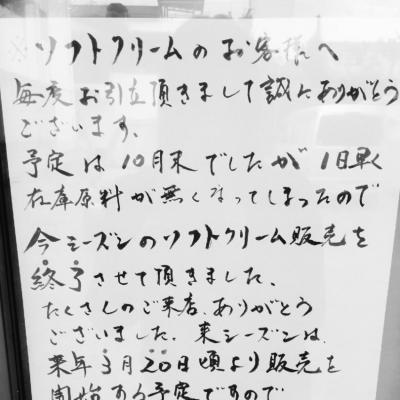 ※ソフトクリームのお客様へ
毎度お引立頂きまして誠にありがとう
ございます、
予定は10月末でしたが1日早く
在庫原料が無くなってしまったので
今シーズンのソフトクリーム販売を
終了させて頂きました、
たくさんのご来店、ありがとう
ございました、来シーズンは、
来年3月20日頃より販売を
開始する予定ですので